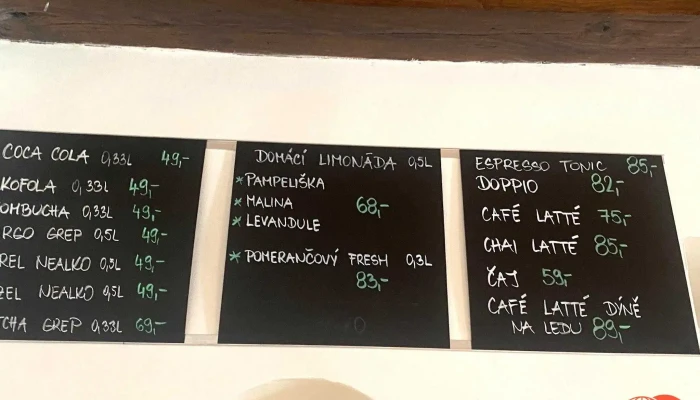 COCA COLA 0,33L 49,-
KOFOLA 0,33L 49,-
OMBUCHA 0,33L 49,-
RGO GREP 0,5L 49,-
REL NEALKO 0,5L 49,-
ZEL NEALKO 0,5L 49,-
TCHA GREP 0,33L 69,-
DOMÁCÍ LIMONÁDA 0,5L
* PAMPELIŠKA
* MALINA 68,-
* LEVANDULE
* POMERANČOVÝ FRESH 0,3L
83,-
ESPRESSO TONIC 85,-
DOPPIO 82,-
CAFÉ LATTÉ 75,-
CHAI LATTÉ 85,-
ČAJ 59,-
CAFÉ LATTÉ DÝNĚ
NA LEDU 89,-